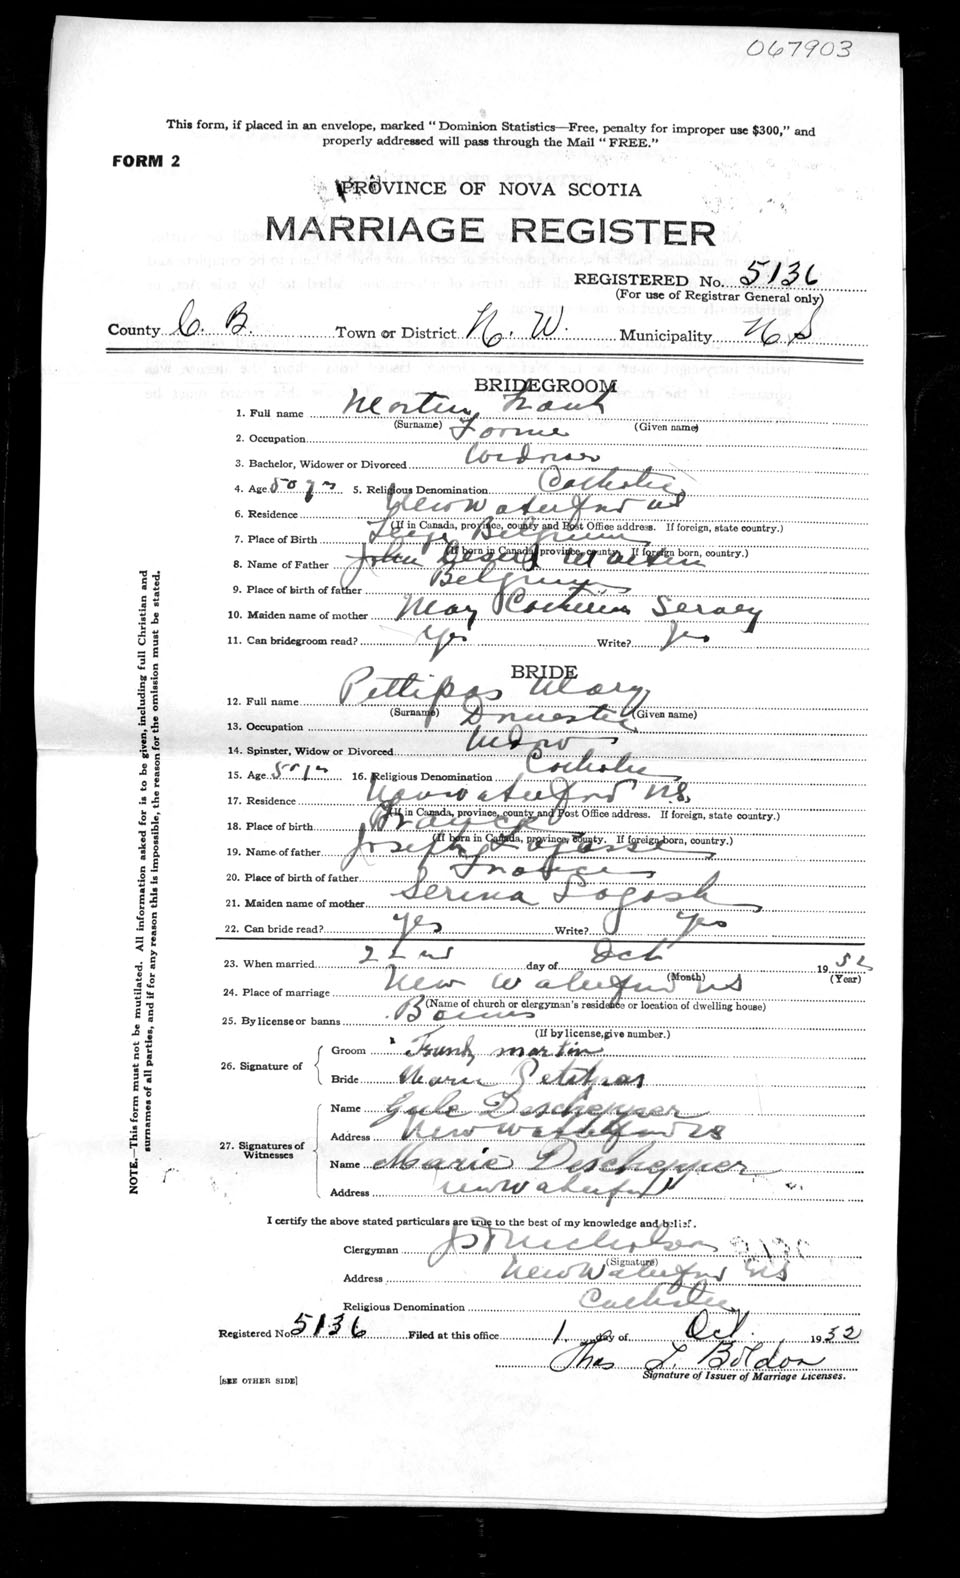 067903
This form, if placed in an envelope, marked "Dominion Statistics—Free, penalty for improper use $300," and
properly addressed will pass through the Mail "FREE."
FORM 2
PROVINCE OF NOVA SCOTIA
MARRIAGE REGISTER
REGISTERED No. 5136
(For use of Registrar General only)
County C. B. Town or District N. W. Municipality N S
BRIDEGROOM
1. Full name Martin, Frank
(Surname) (Given name)
2. Occupation
3. Bachelor, Widower or Divorced Widower
4. Age 50 yrs 5. Religious Denomination Catholic
6. Residence New Waterford NS
(If in Canada, province, county and Post Office address. If foreign, state country.)
7. Place of Birth Belgium
(If born in Canada, province, county. If foreign born, country.)
8. Name of Father John Martin
9. Place of birth of father Belgium
10. Maiden name of mother May
11. Can bridegroom read? Yes Write? Yes
BRIDE
12. Full name Pettipas Mary
(Surname) (Given name)
13. Occupation Domestic
14. Spinster, Widow or Divorced Widow
15. Age 16. Religious Denomination Catholic
17. Residence New Waterford N.S.
(If in Canada, province, county and Post Office address. If foreign, state country.)
18. Place of birth
(If born in Canada, province, county. If foreign born, country.)
19. Name of father Joseph
20. Place of birth of father France
21. Maiden name of mother Serina
22. Can bride read? Yes Write? Yes
23. When married 22nd day of Oct 1932
(Month) (Year)
24. Place of marriage New Waterford NS
(Name of church or clergyman's residence or location of dwelling house)
25. By license or banns Banns
(If by license, give number.)
26. Signature of
Groom Frank Martin
Bride Marie Petitpas
27. Signatures of Witnesses
Name Deschepper
Address New Waterford NS
Name Marie Deschepper
Address New Waterford
I certify the above stated particulars are true to the best of my knowledge and belief.
Clergyman J S Nicholson
(Signature)
Address New Waterford NS
Religious Denomination Catholic
Registered No. 5136 Filed at this office 1. day of Oct. 1932
Thos L. Boldon
Signature of Issuer of Marriage Licenses.
[SEE OTHER SIDE]
NOTE.—This form must not be mutilated. All information asked for is to be given, including full Christian and
surnames of all parties, and if for any reason this is impossible, the reason for the omission must be stated.